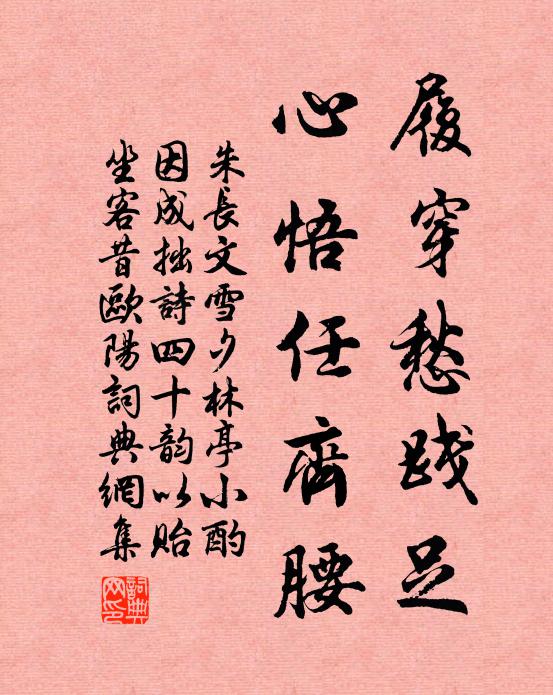 履穿愁踐足
心悟任齊腰
朱長文雪夕林亭小酌
因成拙詩四十韵以貽
坐客昔歐陽詞典網集
詞典网印